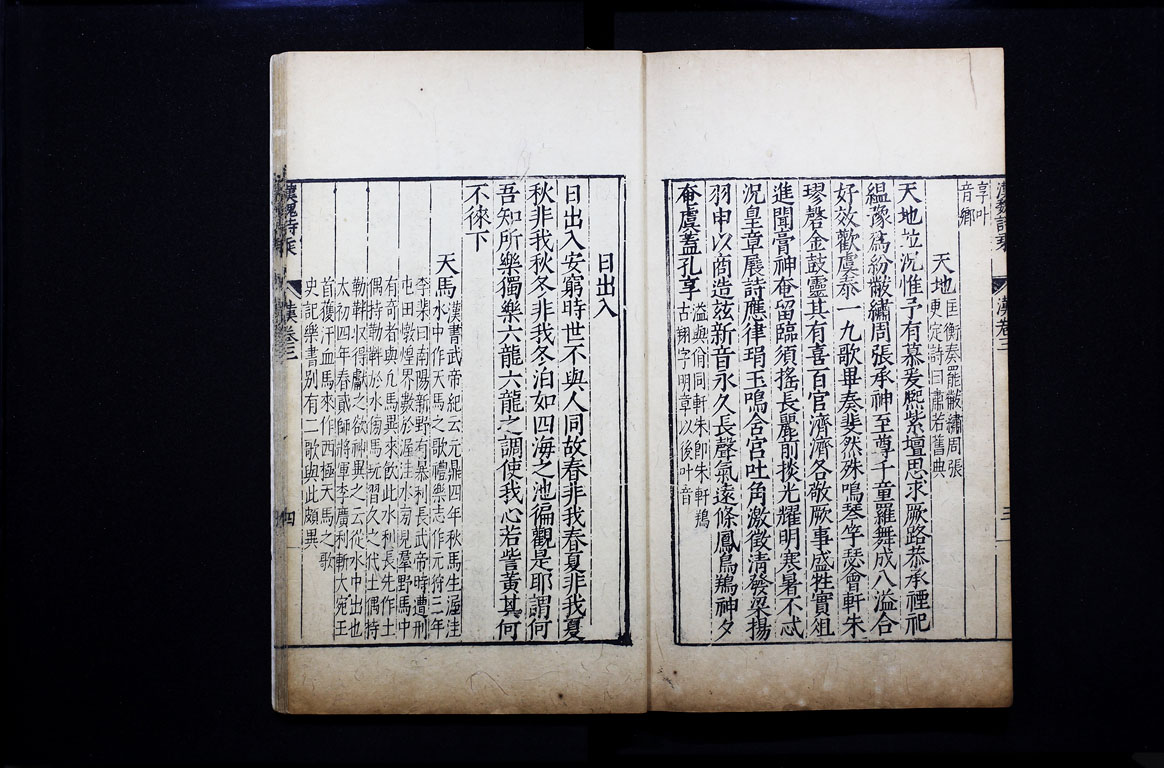 享叶
音鄉
天地匡衡奏罷黻繡周張
更定詩曰肅若舊典
天地並況惟予有慕爰熙紫壇思求厥路恭承禋祀
縕豫爲紛黻繡周張承神至尊千童羅舞成八溢合
好效歡虞泰一九歌畢奏斐然殊鳴琴竽瑟會軒朱
璆磬金鼓靈其有喜百官濟濟各敬厥事盛牲實俎
進聞膏神奄留臨須搖長麗前掞光耀明寒暑不忒
況皇章展詩應律鋗玉鳴含宮吐角激徵清發梁揚
羽申以商造玆新音永久長聲氣遠條鳳鳥鵕神夕
奄虞蓋孔享溢與佾同軒朱即朱軒鵕
古翔字明章以後叶音
漢卷三
三
日出入
日出入安窮時世不與人同故春非我春夏非我夏
秋非我秋冬非我冬泊如四海之池徧觀是耶謂何
吾知所樂獨樂六龍六龍之調使我心若訾黃其何
不徠下
天馬漢書武帝紀云元鼎四年秋馬生渥洼
水中作天馬之歌禮樂志作元狩三年
李斐曰南陽新野有暴利長武帝時遭刑
屯田燉煌界數於渥洼水旁見羣野馬中
有奇者與凡馬異來飲此水利長先作土
偶持勒靽於水旁馬玩習久之代土偶持
勒靽收得獻之欲神異之云從水中出也
太初四年春貳師將軍李廣利斬大宛王
首獲汗血馬來作西極天馬之歌
史記樂書別有二歌與此頗異
漢魏詩乘
漢卷三
四